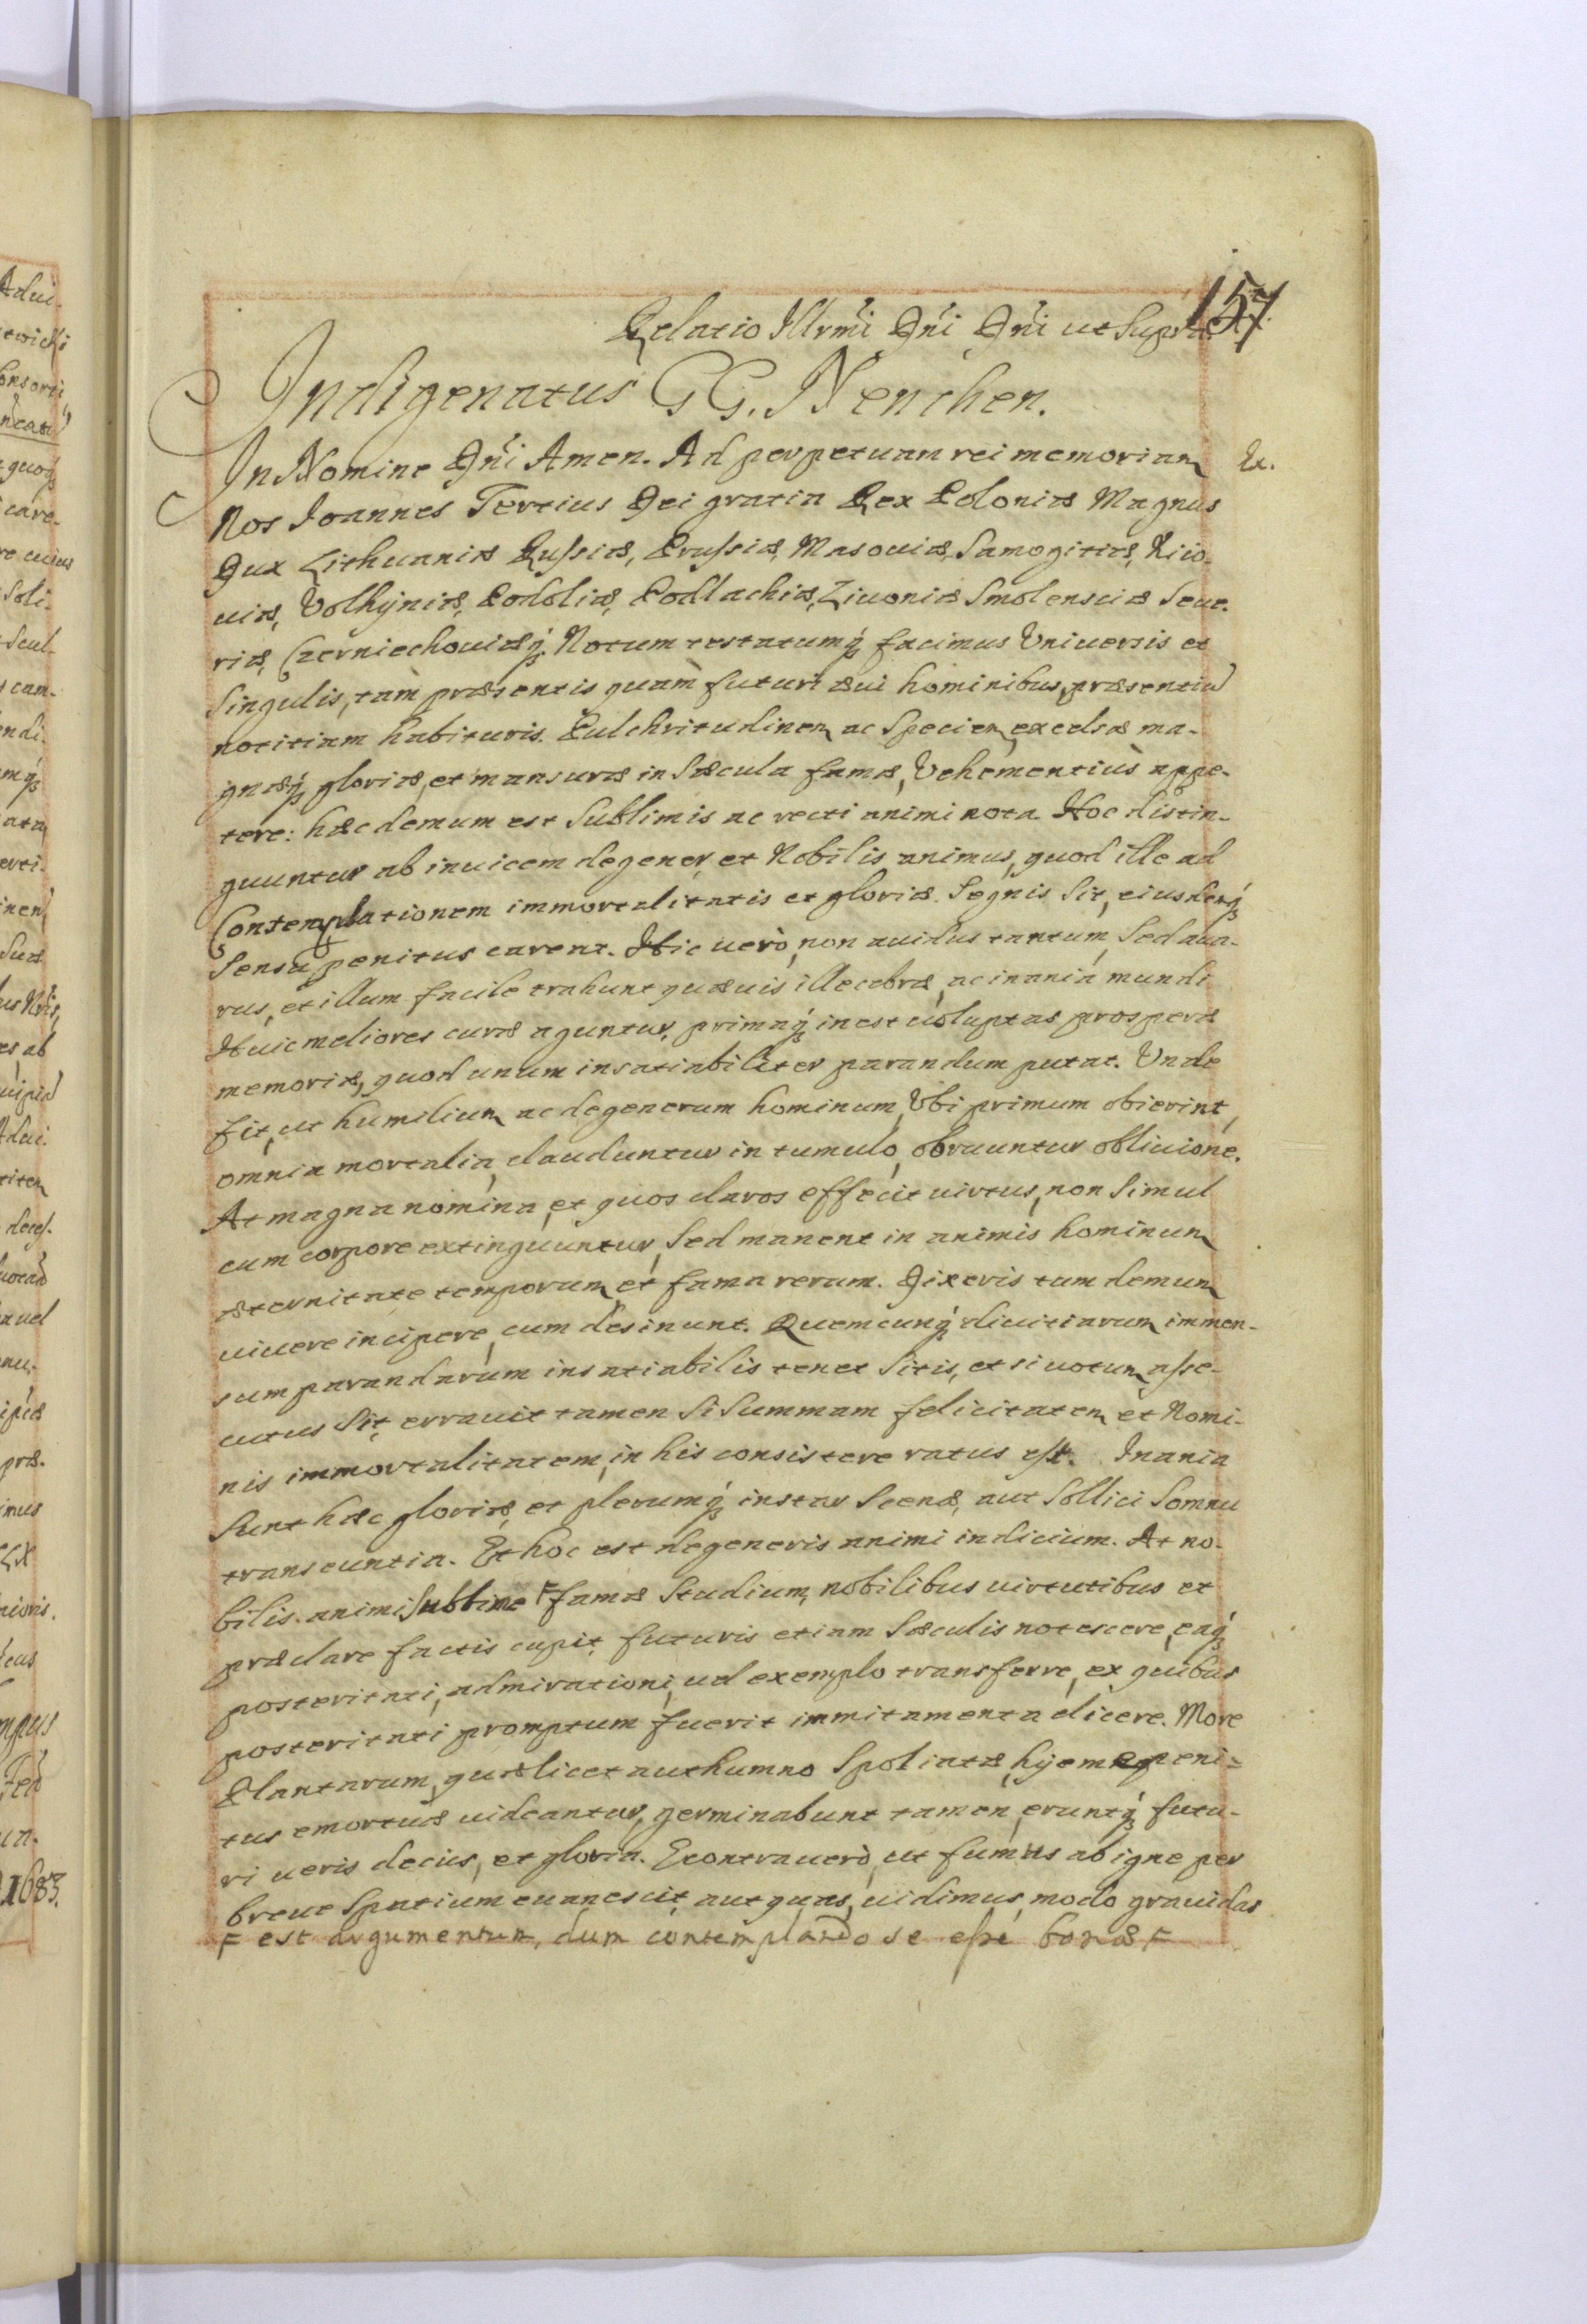 157
Relatio Illrmi Dni Dni ut supra
Indigenatus GG. Nenchen.
In Nomine Dni Amen. Ad perpetuam rei memoriam Ex.
Nos Joannes Tertius Dei gratia Rex Poloniæ Magnus
Dux Lithuaniæ Russiæ, Prussiæ, Masouiæ, Samogitiæ, Kiio-
uiæ, Volhyniæ, Podoliæ, Podlachiæ, Liuoniæ Smolensciæ Seue-
riæ, Czerniechouiæq. Notum testatumq facimus Vniuersis et
Singulis, tàm præsentis quàm futuri æui hominibus, præsentiu
notitiam habituris. Pulchritudinem ac Speciem, excelsæ ma-
gnæq gloriæ, et mansuræ in Sæcula famæ, Vehementiùs appe-
tere: hæc demum est Sublimis ac recti animi nota. Hoc distin-
guuntur ab inuicem degener, et Nobilis animus, quod ille ad
Contemplationem immortalitatis et gloriæ. Segnis Sit, eiusdemq
Sensu penitus carent. Hic uerò, non auidus tantum, Sed aua-
rus, et illum facile trahunt quæuis illecebræ, ac inania mundi
Huic meliores curæ aguntur, primaq inest uoluptas prosperæ
memoriæ, quod unum insatiabiliter parandum putat. Vnde
fit, ut humilium, ac degenerum hominum, Vbi primum obierint,
omnia mortalia, clauduntur in tumulo, obruuntur obliuione.
At magna nomina, et quos claros effecit uirtus, non Simul
cum corpore extinguuntur, Sed manent in animis hominum
æternitate temporum, et fama rerum. Dixeris tum demum
uiuere incipere, cum desinunt. Quemcunq diuitiarum immen-
sum parandarum insatiabilis tenet Sitis, etsi uotum asse-
cutus Sit, errauit tamen Si Summam felicitatem, et Nomi-
nis immortalitatem, in his consistere ratus est. Inania
Sunt hæc gloriæ, et plerumq instar Scenæ, aut Sollici Somnu
transeuntia. Et hoc est degeneris animi indicium. At no-
bilis animi Sublime F famæ Studium, nobilibus uirtutibus et
præclare factis cupit, futuris etiam Sæculis notescere, eaq
posteritati, admirationi, uel exemplo transferre, ex quibus
posteritati promptum fuerit immitamenta elicere. More
Plantarum, quæ licet authumno Spoliatæ, hyemeq peni-
tus emortuæ uideantur, germinabunt tamen, eruntq futu-
ri ueris decus, et gloria. Econtrauerò, ut fumus ab igne per
breue Spatium euanescit, aut quas, uidimus, modo grauidas
F est argumentum, dum contemplando se esse bonæ F